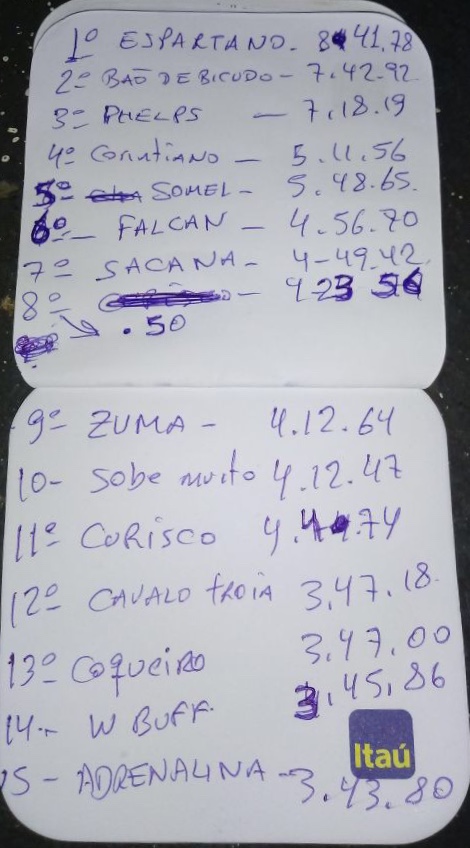 1º ESPARTANO - 8 41.78
2º BAÕ DE BICUDO - 7.42.92
3º PHELPS - 7.18.19
4º Corintiano - 5.11.56
5º SOMEL - 5.48.65.
6º - FALCAN - 4.56.70
7º SACANA - 4-49.42
8º - 4 23 56
.50
9º ZUMA - 4.12.64
10- Sobe muito 4.12.47
11º CORISCO 4. .74
12º CAVALO TROIA 3.47.18.
13º COQUEIRO 3.47.00
14- W BUFF. 3.45,86
15 - ADRENALINA - 3.43.80
Itaú